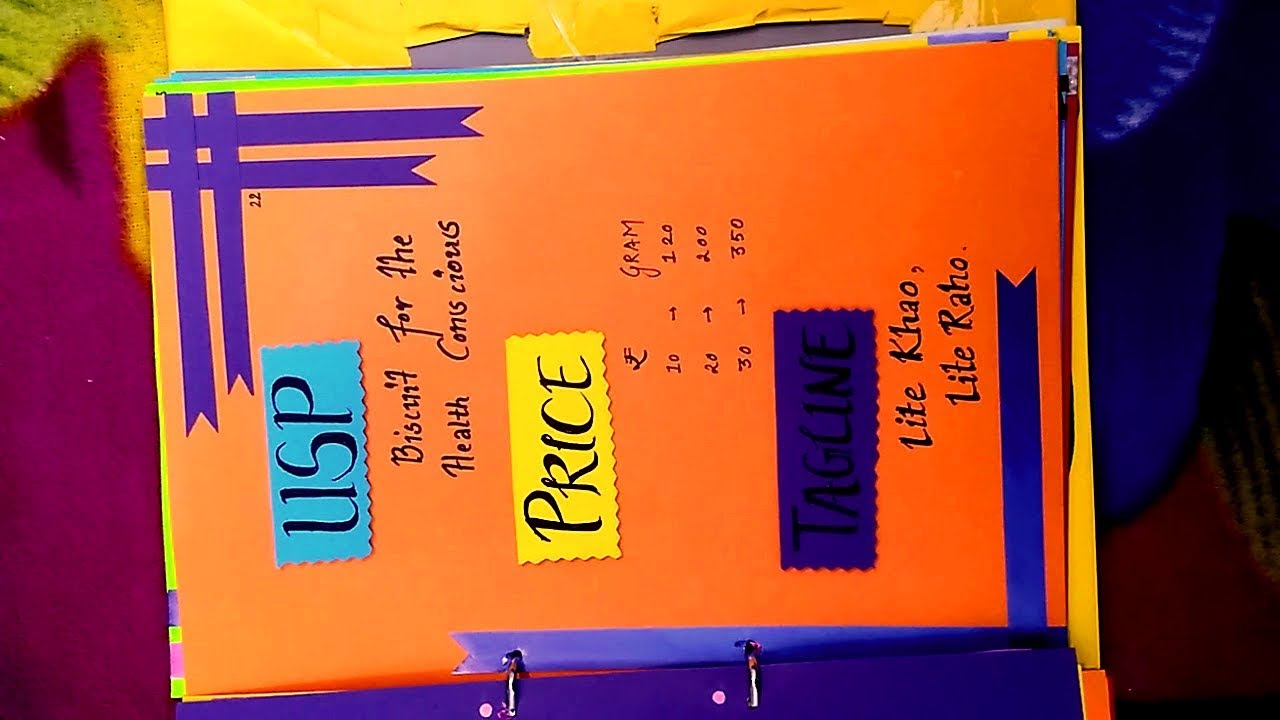 22
USP
Biscuit for the
Health Conscious
PRICE
₹ GRAM
10 → 120
20 → 200
30 → 350
TAGLINE
Lite Khao,
Lite Raho.